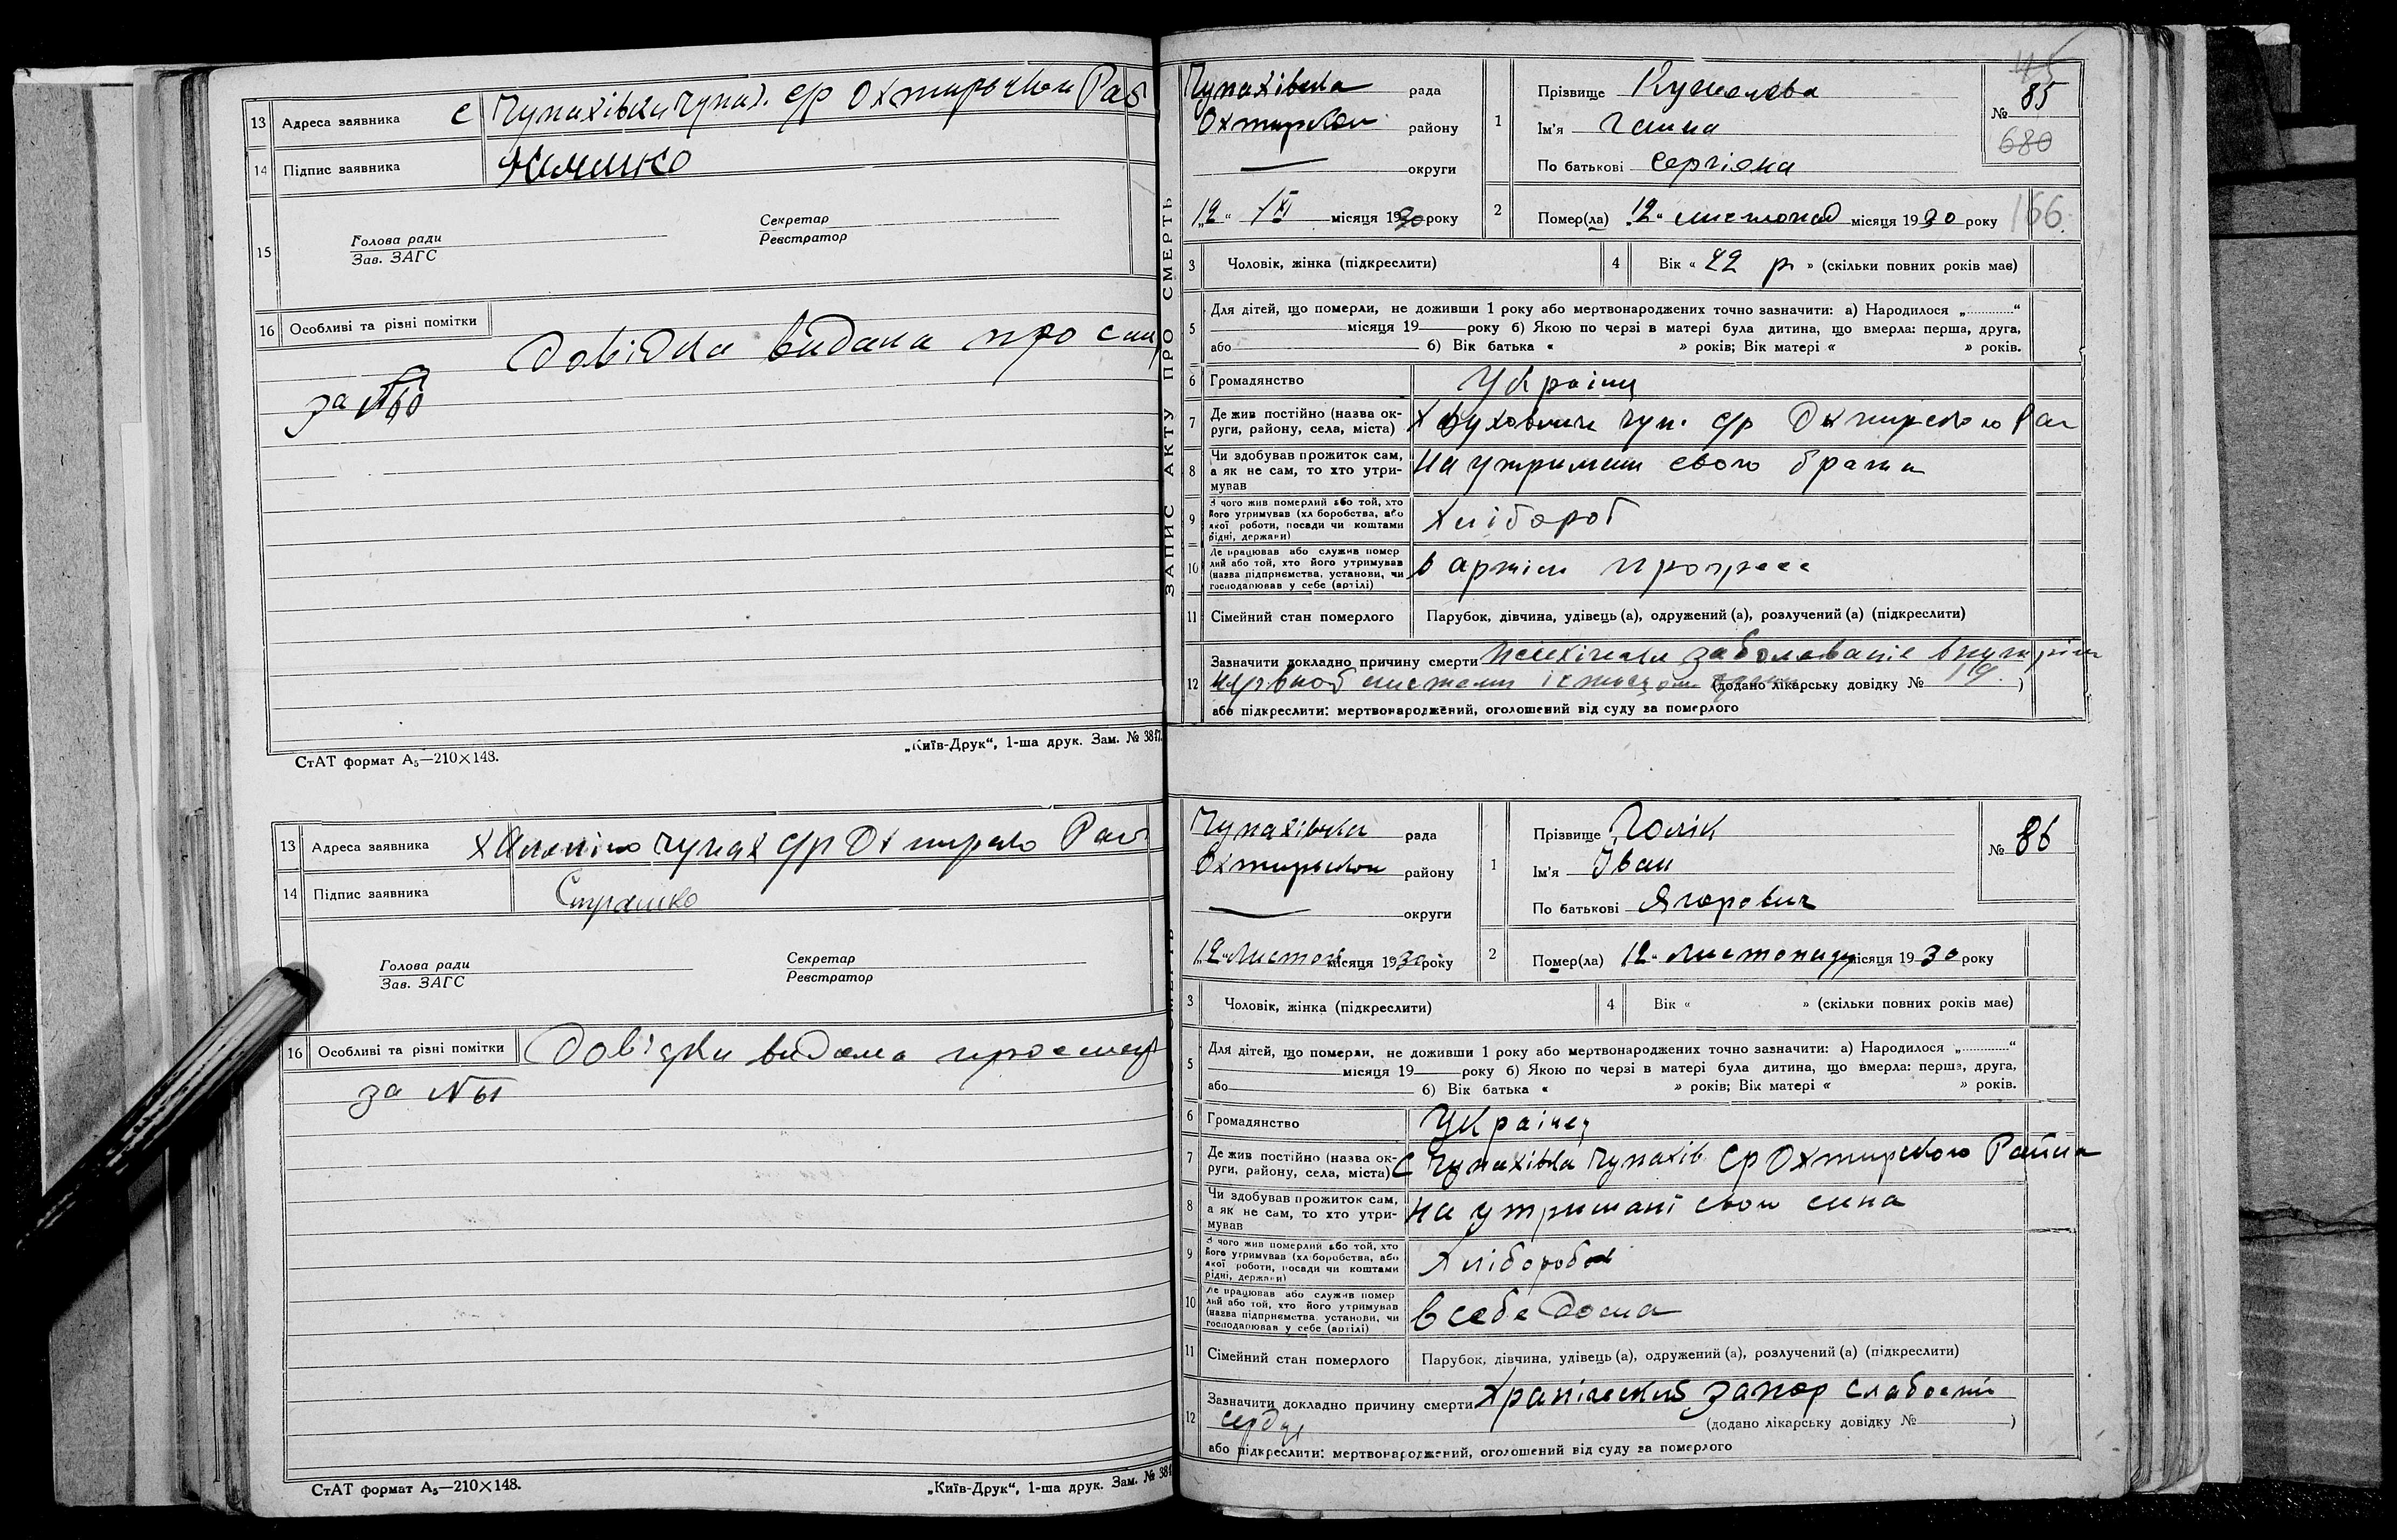 13 Адреса заявника с Чупахівки Чупах. с/р Охтирської Рай
14 Підпис заявника
15 Голова ради
Зав. ЗАГС
Секретар
Реєстратор
16 Особливі та різні помітки
Довідка видана про см
за № 60
СтАТ формат А₅—210×148.
„Київ-Друк“, 1-ша друк. Зам. № 3847.
13 Адреса заявника х чупах с/р Охтирсько Рай
14 Підпис заявника
Голова ради
Зав. ЗАГС
Секретар
Реєстратор
16 Особливі та різні помітки Довідки видана про смер
за № 61
СтАТ формат А₅—210×148.
„Київ-Друк“, 1-ша друк. Зам. № 384
ЗАПИС АКТУ ПРО СМЕРТЬ
Чупахівська рада
Охтирської району
— округи
„12“ /XI місяця 1930 року
1 Прізвище
Ім'я Ганна
По батькові Сергієвна
45
№ 85
680
2 Помер(ла) „12“ листопад місяця 1930 року
166.
3 Чоловік, жінка (підкреслити)
4 Вік « 22 р » (скільки повних років має)
5 Для дітей, що померли, не доживши 1 року або мертвонароджених точно зазначити: а) Народилося „............“
місяця 19 року б) Якою по черзі в матері була дитина, що вмерла: перша, друга,
або б) Вік батька « » років; Вік матері « » років.
6 Громадянство Україн
7 Де жив постійно (назва ок-
руги, району, села, міста) х чуп. с/р Охтирсько Рай
8 Чи здобував прожиток сам,
а як не сам, то хто утри-
мував На утриман свого брата
9 З чого жив померлий або той, хто
його утримував (хліборобства, або
якої роботи, посади чи коштами
рідні, держави) Хлібороб
10 Де працював або служив помер
лий або той, хто його утримував
(назва підприємства, установи, чи
господарював у себе (артілі) в артіли прогресс
11 Сімейний стан померлого Парубок, дівчина, удівець (а), одружений (а), розлучений (а) (підкреслити)
12 Зазначити докладно причину смерти заболеваніе
нервноб системи (додано лікарську довідку № 19.)
або підкреслити: мертвонароджений, оголошений від суду за померлого
Чупахівська рада
Охтирської району
— округи
„12“ Листоп місяця 1930 року
1 Прізвище Голік
Ім'я Іван
По батькові Ягорович
№ 86
2 Помер(ла) „12“ листопаду місяця 1930 року
3 Чоловік, жінка (підкреслити)
4 Вік « » (скільки повних років має)
5 Для дітей, що померли, не доживши 1 року або мертвонароджених точно зазначити: а) Народилося „............“
місяця 19 року б) Якою по черзі в матері була дитина, що вмерла: перша, друга,
або б) Вік батька « » років; Вік матері « » років.
6 Громадянство Українец
7 Де жив постійно (назва ок-
руги, району, села, міста) С Чупахівка Чупахів Ср Охтирського Района
8 Чи здобував прожиток сам,
а як не сам, то хто утри-
мував На утримані свого сина
9 З чого жив померлий або той, хто
його утримував (хліборобства, або
якої роботи, посади чи коштами
рідні, держави) Хлібороба
10 Де працював або служив помер
лий або той, хто його утримував
(назва підприємства, установи, чи
господарював у себе (артілі) в себе дома
11 Сімейний стан померлого Парубок, дівчина, удівець (а), одружений (а), розлучений (а) (підкреслити)
12 Зазначити докладно причину смерти хранический запор слабости
сердця (додано лікарську довідку № )
або підкреслити: мертвонароджений, оголошений від суду за померлого